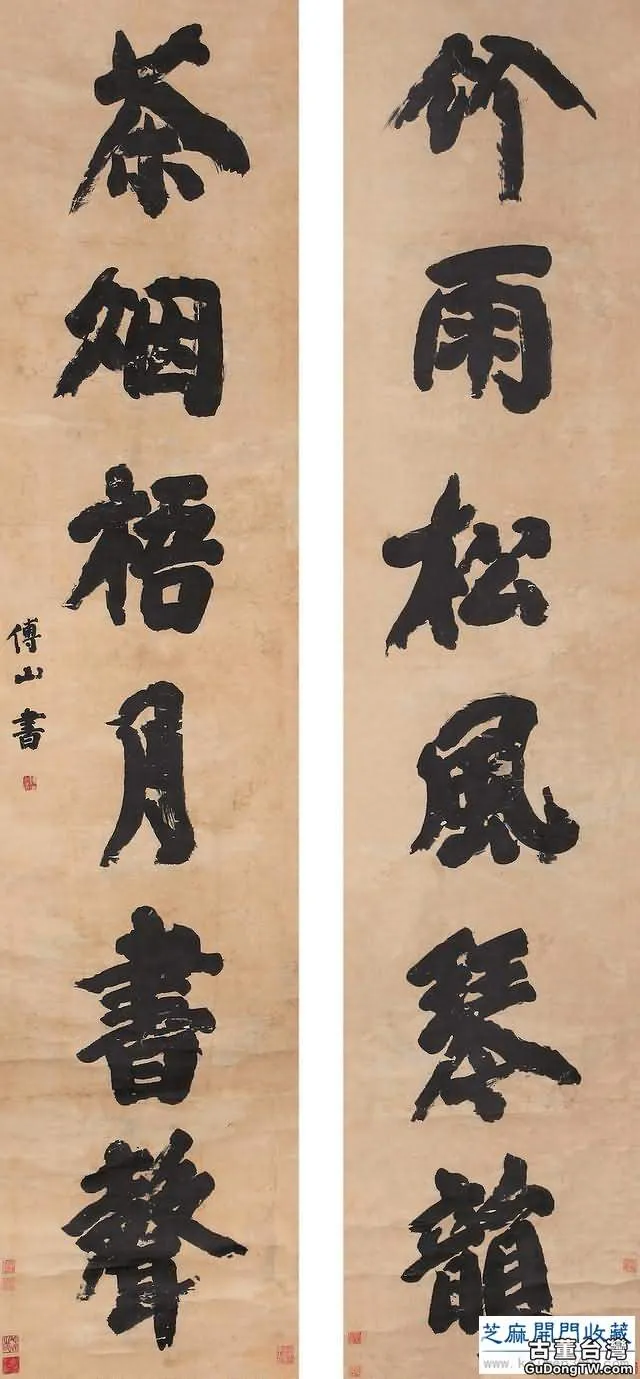 竹雨松風琴韻
茶烟梧月書聲
傅山書
芝麻開門收藏
古董台灣
GuDongTW.com